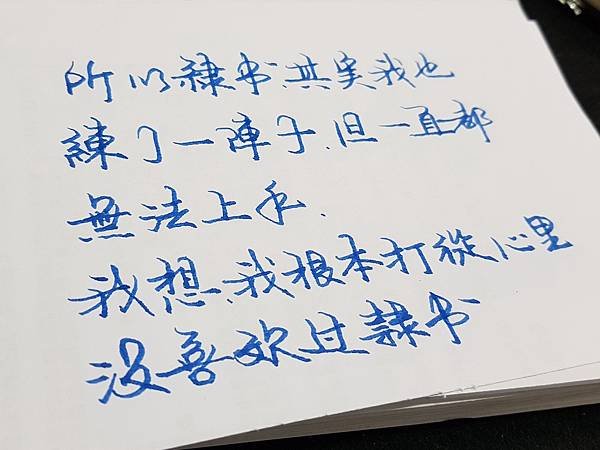 所以隸书,其实我也
練了一陣子,但一直都
無法上手.
我想,我根本打從心里
没喜欢过隸书